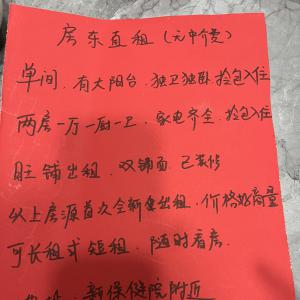 房东直租(无中介费)
单间、有大阳台、独卫独卧、拎包入住
两房一厅一厨一卫、家电齐全、拎包入住
旺铺出租、双铺面、已装修
以上房源首次全新出租、价格好商量
可长租或短租、随时看房.
新保健院附近